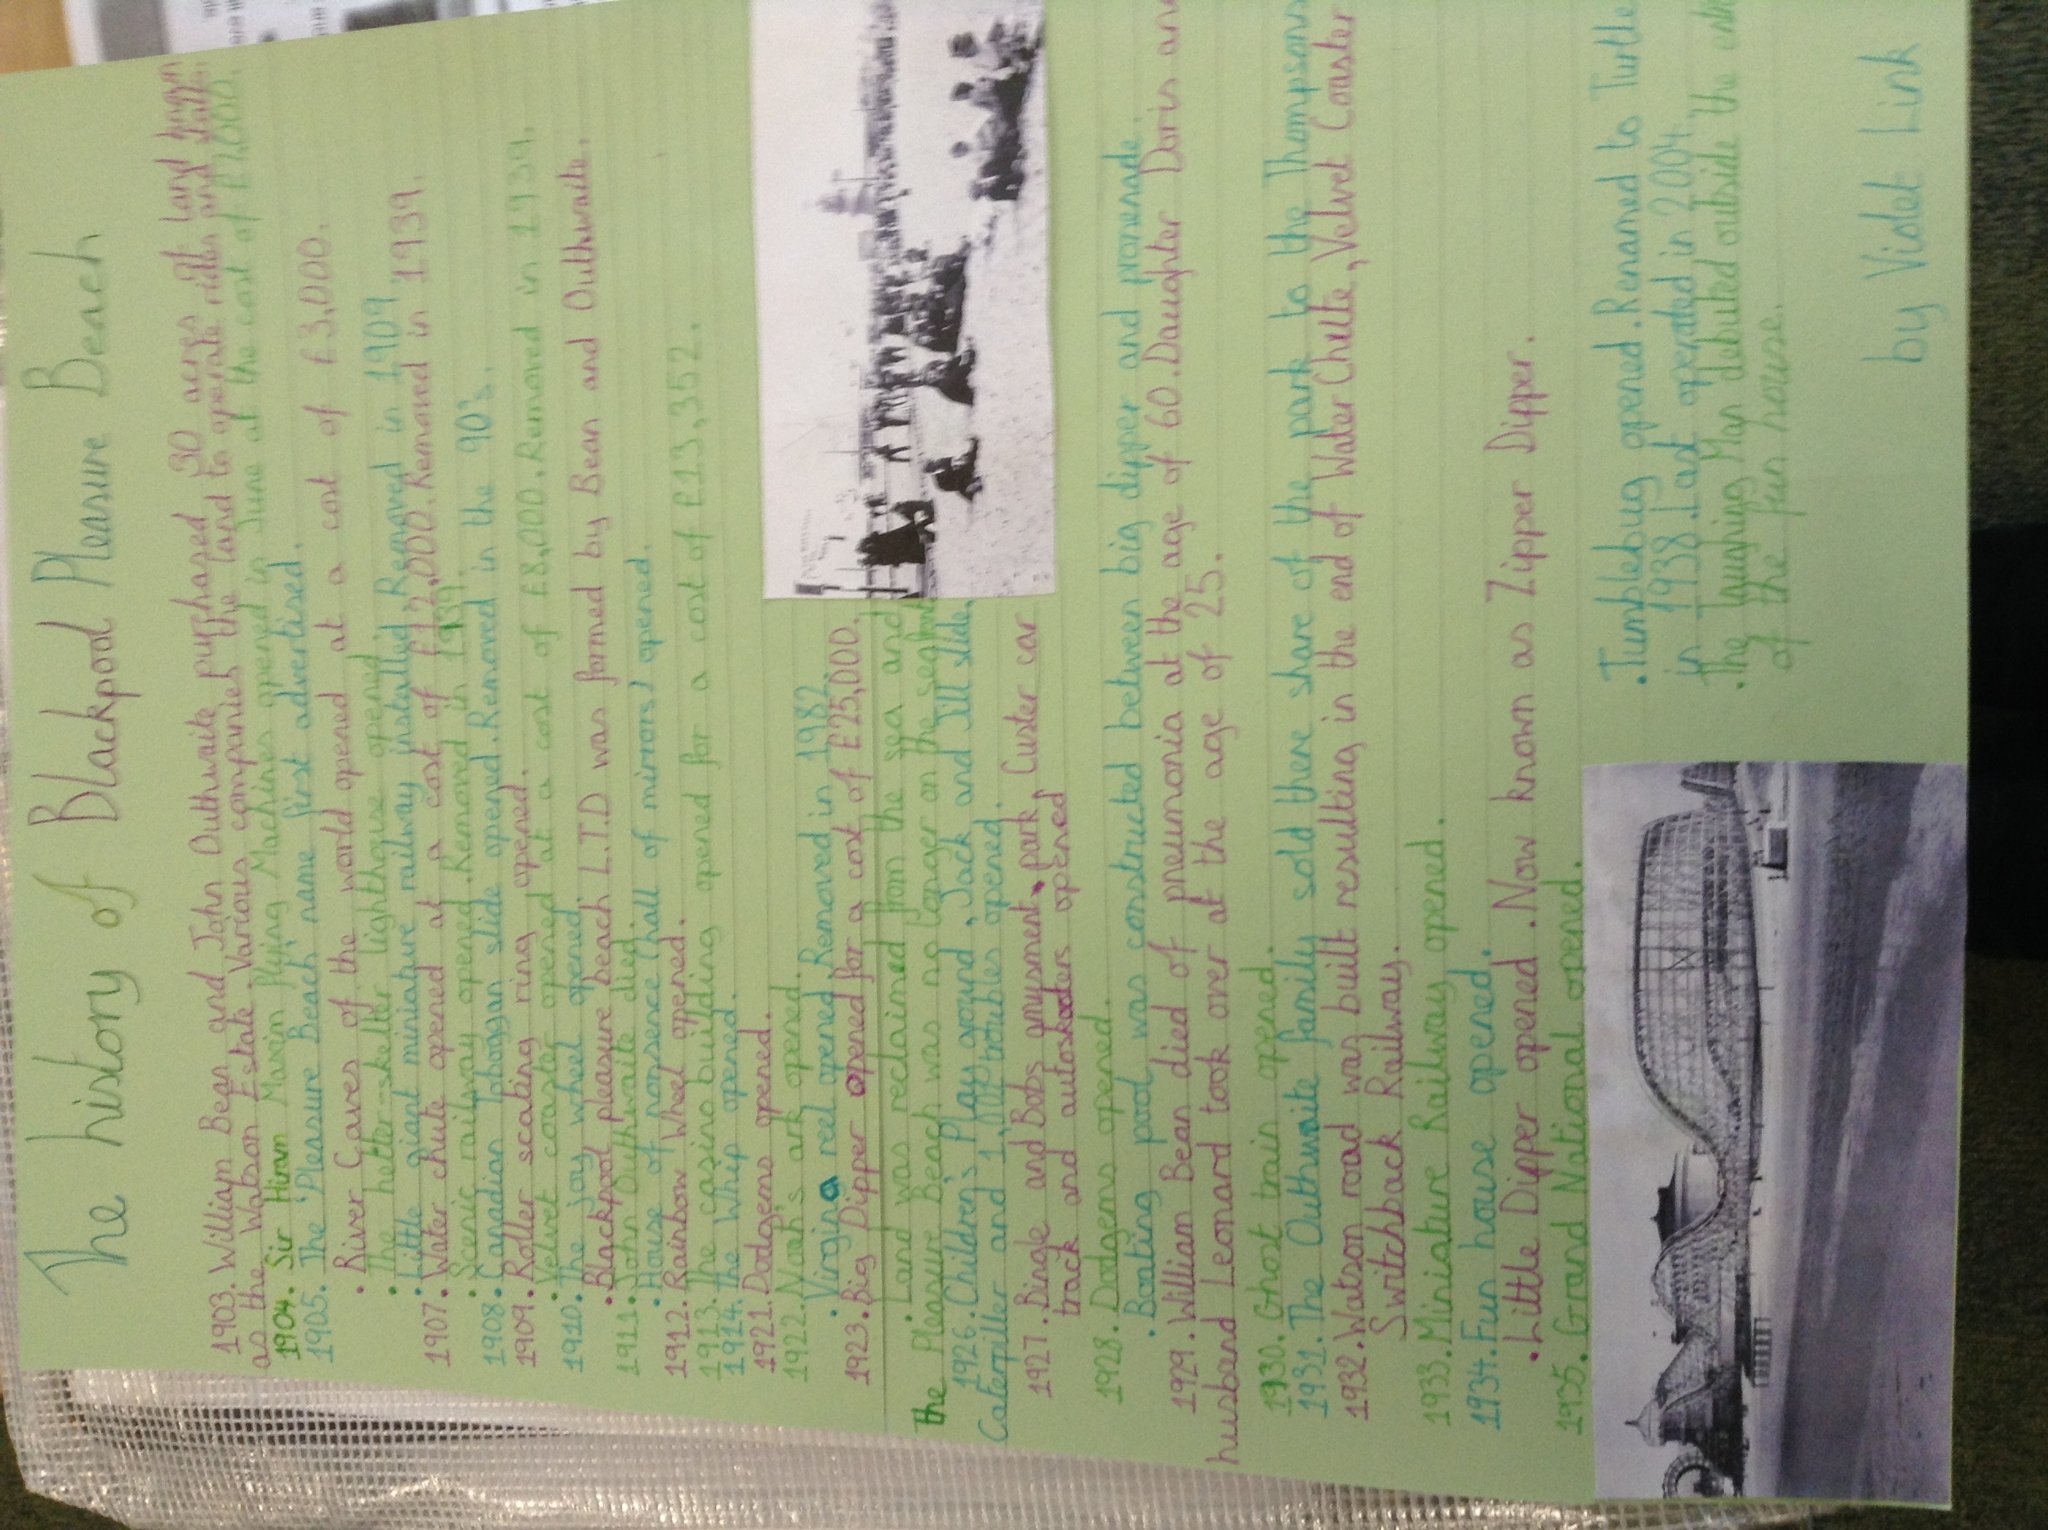 The history of Blackpool Pleasure Beach
1903. William Bean and John Outhwaite purchased 30 acres of land known
as the Watson Estate. Various companies the land to operate rides and stalls.
1904. Sir Hiram Maxim flying Machines opened in June at the cost of £7,000.
1905. The 'Pleasure Beach' name first advertised.
• River Caves of the world opened at a cost of £3,000.
• The helter-skelter lighthouse opened.
• Little giant miniature railway installed. Removed in 1909.
1907. Water chute opened at a cost of £12,000. Removed in 1939.
• Scenic railway opened. Removed in 1939.
1908. Canadian Toboggan slide opened. Removed in the 90's.
1909. Roller scating ring opened.
• Velvet coaster opened at a cost of £8,000. Removed in 1939.
1910. The joy wheel opened.
• Blackpool pleasure beach L.T.D was formed by Bean and Outhwaite.
1911. John Outhwaite died.
• House of nonsence (hall of mirrors) opened.
1912. Rainbow Wheel opened.
1913. The casino building opened for a cost of £13,352.
1914. The Whip opened.
1921. Dodgems opened.
1922. Noah's ark opened.
• Virgina reel opened. Removed in 1982.
1923. Big Dipper opened for a cost of £25,000.
• Land was reclaimed from the sea and
the Pleasure Beach was no longer on the seafront.
1926. Children's Play ground, Jack and Jill slide,
Caterpiller and 1,001 troubles opened.
1927. Bingle and Bobs amusment park, Custer car
track and autoskooters opened
1928. Dodgems opened.
• Boating pool was constructed between big dipper and promenade.
1929. William Bean died of pneumonia at the age of 60. Daughter Doris and
husband Leonard took over at the age of 25.
1930. Ghost train opened.
1931. The Outhwaite family sold there share of the park to the Thompsons
1932. Watson road was built resulting in the end of Water Chute, Velvet Coaster
Switchback Railway.
1933. Miniature Railway opened.
1934. Fun house opened.
• Little Dipper opened. Now known as Zipper Dipper.
1935. Grand National opened.
• Tumblebug opened. Renamed to Turtle
in 1938. Last operated in 2004.
• The laughing Man debuted outside the
of the fun house.
by Violet Link